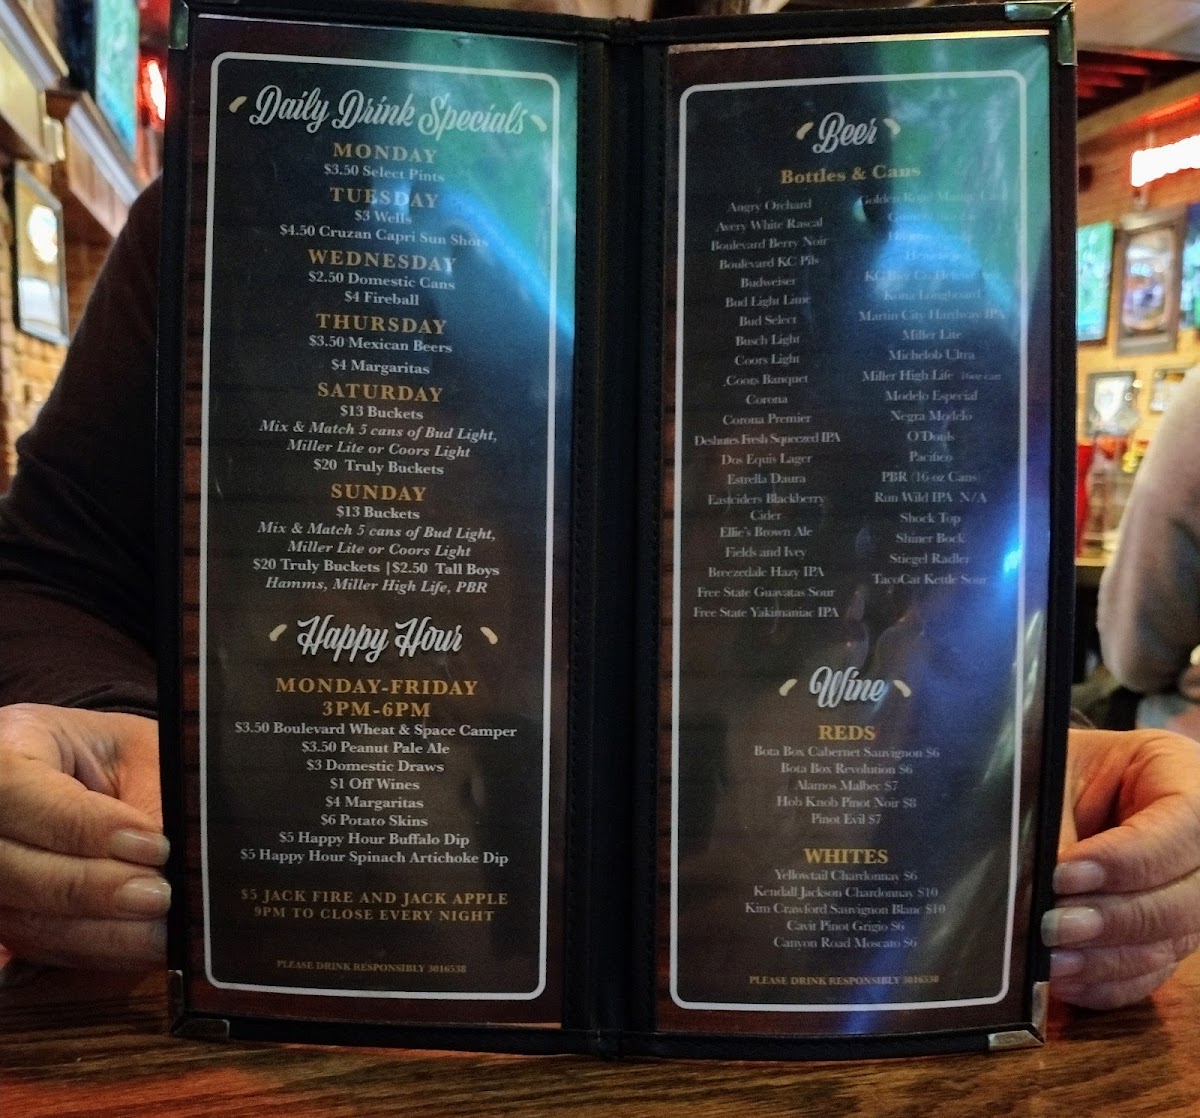 Daily Drink Specials
MONDAY
$3.50 Select Pints
TUESDAY
$3 Wells
$4.50 Cruzan Capri Sun Shots
WEDNESDAY
$2.50 Domestic Cans
$4 Fireball
THURSDAY
$3.50 Mexican Beers
$4 Margaritas
SATURDAY
$13 Buckets
Mix & Match 5 cans of Bud Light,
Miller Lite or Coors Light
$20 Truly Buckets
SUNDAY
$13 Buckets
Mix & Match 5 cans of Bud Light,
Miller Lite or Coors Light
$20 Truly Buckets | $2.50 Tall Boys
Hamms, Miller High Life, PBR
Happy Hour
MONDAY-FRIDAY
3PM-6PM
$3.50 Boulevard Wheat & Space Camper
$3.50 Peanut Pale Ale
$3 Domestic Draws
$1 Off Wines
$4 Margaritas
$6 Potato Skins
$5 Happy Hour Buffalo Dip
$5 Happy Hour Spinach Artichoke Dip
$5 JACK FIRE AND JACK APPLE
9PM TO CLOSE EVERY NIGHT
PLEASE DRINK RESPONSIBLY 3016538
Beer
Bottles & Cans
Angry Orchard
Avery White Rascal
Boulevard Berry Noir
Boulevard KC Pils
Budweiser
Bud Light Lime
Bud Select
Busch Light
Coors Light
Coors Banquet
Corona
Corona Premier
Deshutes Fresh Squeezed IPA
Dos Equis Lager
Estrella Daura
Eastciders Blackberry
Cider
Ellie's Brown Ale
Fields and Ivey
Breezedale Hazy IPA
Free State Guavatas Sour
Free State Yakimaniac IPA
Golden Road Mango Cart
KC Bier Co
Kona Longboard
Martin City Hardway IPA
Miller Lite
Michelob Ultra
Miller High Life 16oz can
Modelo Especial
Negra Modelo
O'Douls
Pacifico
PBR (16 oz Cans)
Run Wild IPA N/A
Shock Top
Shiner Bock
Stiegel Radler
TacoCat Kettle Sour
Wine
REDS
Bota Box Cabernet Sauvignon $6
Bota Box Revolution $6
Alamos Malbec $7
Hob Knob Pinot Noir $8
Pinot Evil $7
WHITES
Yellowtail Chardonnay $6
Kendall Jackson Chardonnay $10
Kim Crawford Sauvignon Blanc $10
Cavit Pinot Grigio $6
Canyon Road Moscato $6
PLEASE DRINK RESPONSIBLY 3016538